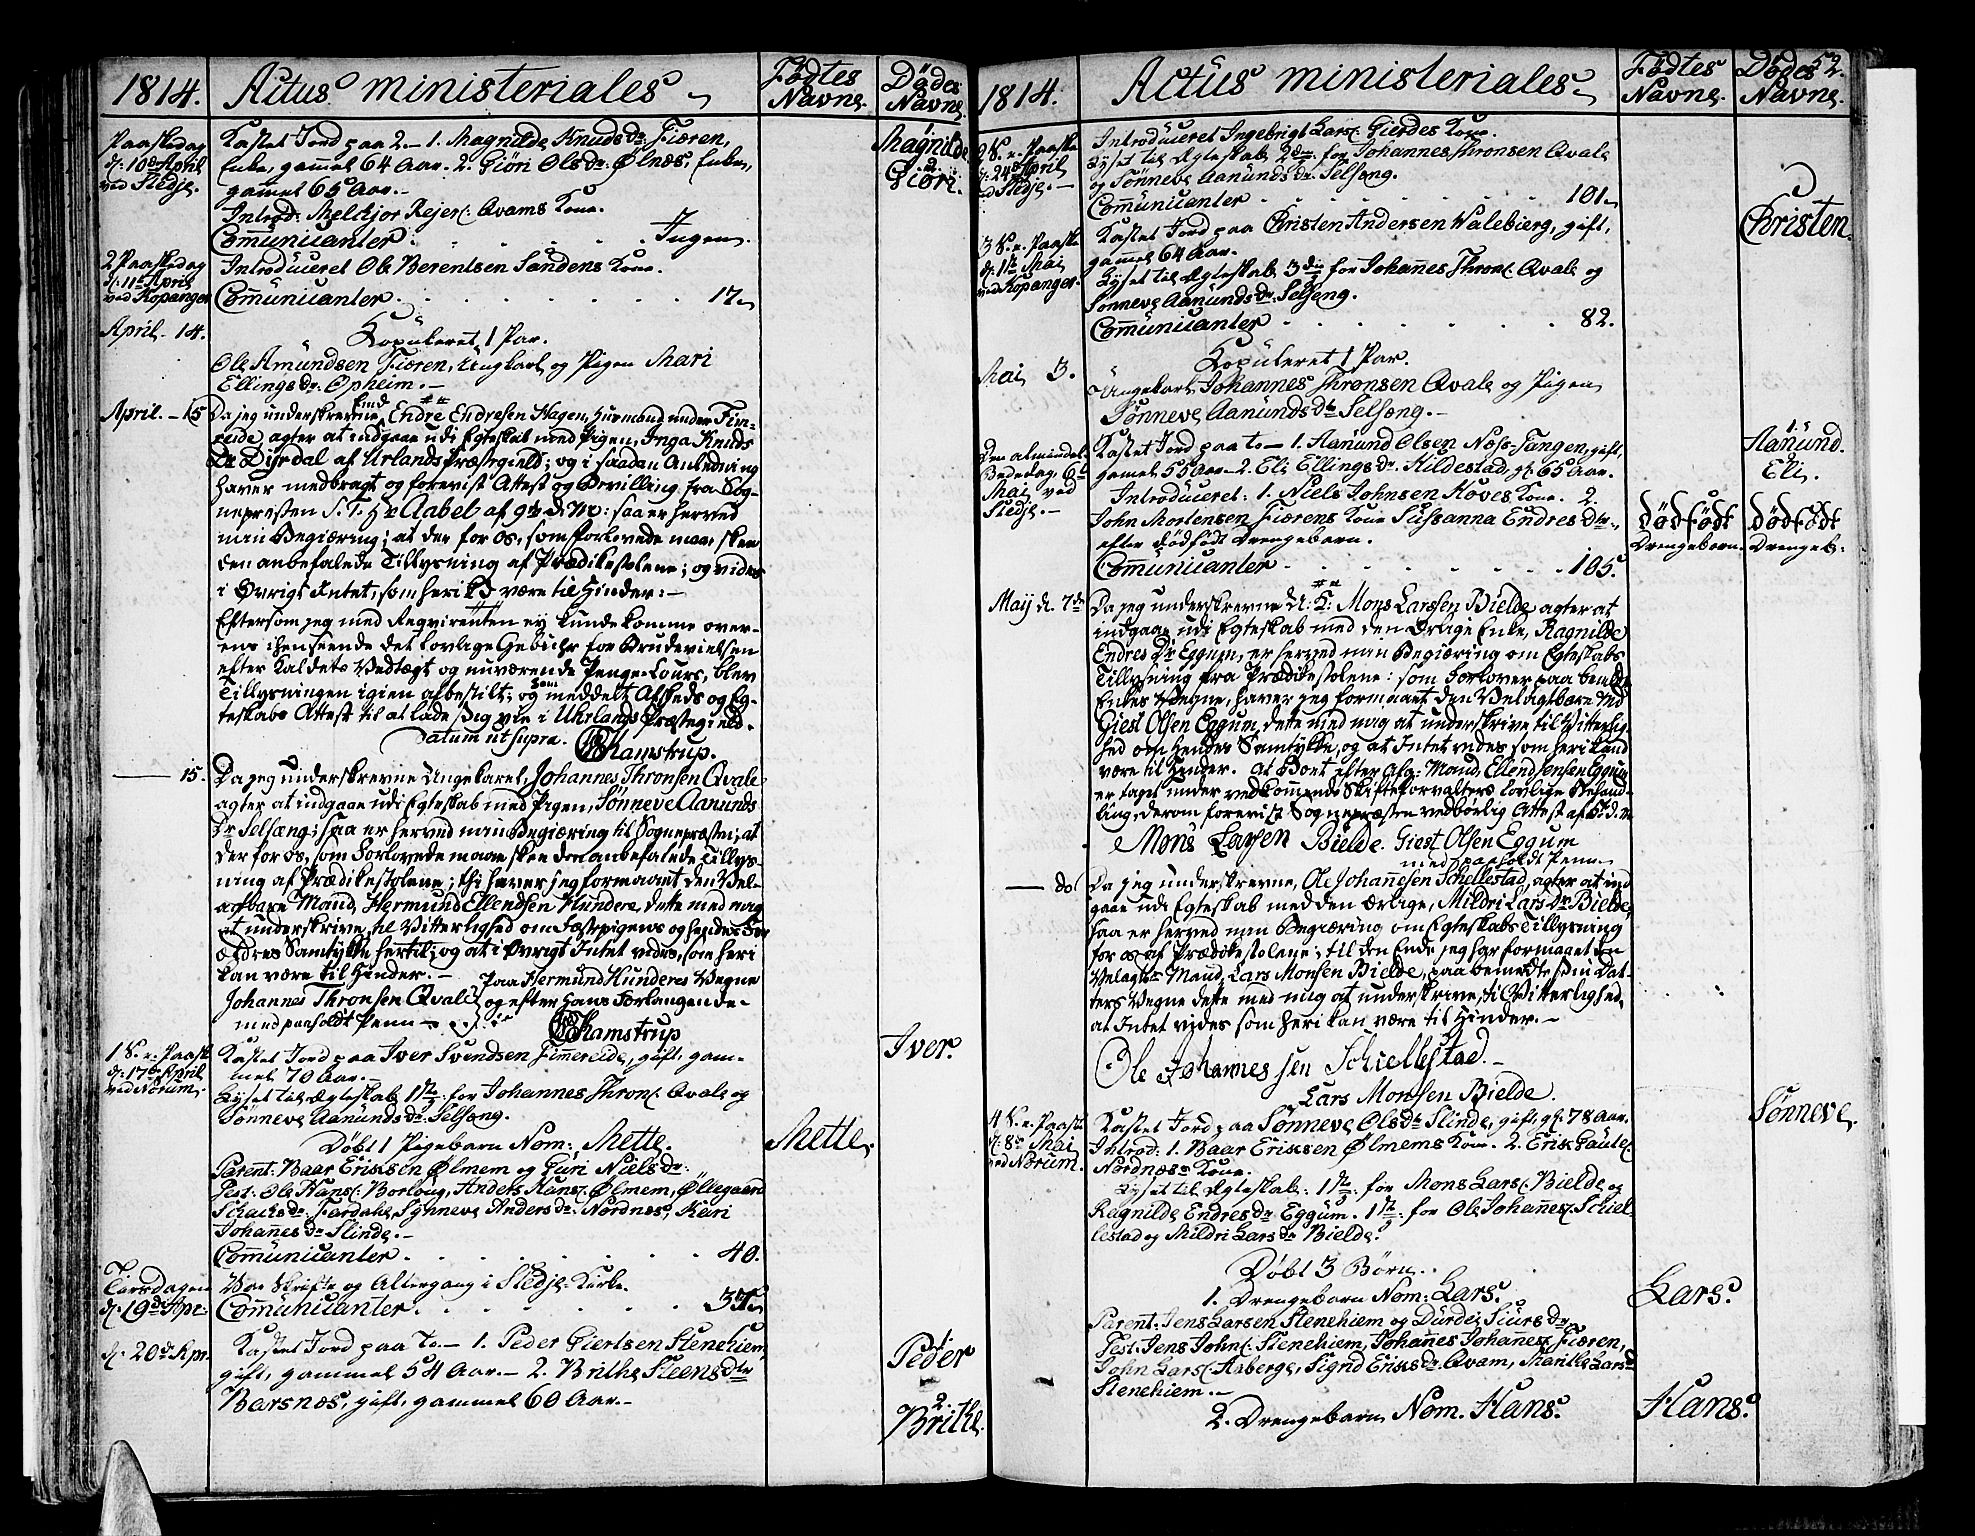 1814.
Actus ministeriales
Födtes Navne.
Dödes Navne.
Paaskedag
d. 10de April
ved Stedje.
Kastet Jord paa 2 - 1. Magnilde Knuds dr Fiæren,
Enke, gammel 64 Aar. 2. Giöri Ols dr. Ølnæs, Enke,
gammel 65 Aar. -
Introd: Melchjor Rejers. Qvams Kone.
Communicanter . . . . . . Ingen.
1.
Magnilde
2.
Giöri.
2 Paaskedag
d. 11te April
ved Kopanger
Introduceret Ole Berentsen Sandens Kone.
Communicanter . . . . . . 17
April 14.
Kopuleret 1 Par.
Ole Amundsen Fiæren, Ungkarl og Pigen Mari
Ellings dr. Opheim. -
April - 15
Da jeg underskrevne Enkemd Endre Endresen Hagen, Huusmand under Fim-
reide, agter at indgaae udi Egteskab med Pigen, Inga Knuds
Dr Dyrdal af Urlands Præstegield; og i saadan Anledning
haver medbragt og forevist Attest og Bevilling fra Sog-
nepresten S. T. Hr Aabel af 9de d. M: saa er herved
min Begiæring; at der for os, som forlovede maae skee
den anbefalede Tillysning af Prædikestolene; og vides
i Øvrigt Intet, som heri kan være til Hinder: -
Eftersom jeg med Reqvirenten ey kunde komme over-
eens i henseende det lovlige Gebühr for Brudevielsen
efter Kaldets Vedtægt og nuværende Penge-Cours, blev
Tillysningen igien afbestilt; og som meddelt Afskeds og Eg-
teskabs Attest til at lade sig vie i Uhrlands Præstegield.
Datum ut supra. Kamstrup.
15.
Da jeg underskrevne Ungekarl, Johannes Thronsen Qvale
agter at indgaae udi Egteskab med Pigen, Sönneve Aamunds
Dr Selseng; saa er herved min Begiæring til Sognepræsten; at
der for os, som Forlovede maae skee den anbefalede Tillys-
ning af Prædikestolene; thi haver jeg formaaet den Vel-
agtbare Mand, Hermund Ellendsen Hundere, dette med mig
at underskrive, til Vitterlighed om Fæstepigens og hendes For-
ældres Samtykke hertil; og at i Øvrigt Intet vides, som heri
kan være til Hinder. -
Johannes Thronsen Qvale
med paaholdt Penn
Paa Hermund Hunderes Vegne
og efter Hans Forlangende
Kamstrup
1 S. e. Paaske
d. 17de April
ved Norum.
Kastet Jord paa Iver Svendsen Fimmereide, gift, gam-
mel 70 Aar. -
Lyset til Ægteskab 1ste for Johannes Throns. Qvale og
Sönneve Aamunds dr. Selseng.
Iver.
Döbt 1 Pigebarn Nom: Mette.
Parent: Baar Eriksen Ølmem og Guri Niels dr:
Test: Ole Hans. Borlaug, Anders Hans. Ølmem, Øllegaard
Schacks dr. Fardahl, Synneve Anders dr. Nordnes, Kari
Johannes dr Slinde. -
Communicanter . . . . . . 40.
Mette.
Tiirsdagen
d. 19de Apr.
Var Skrifte og Altergang i Stedje-Kirke.
Communicanter . . . . . . 37
d. 20de Apr.
Kastet Jord paa To - 1. Peder Giertsen Stenehiem,
gift, gammel 54 Aar. - 2. Brithe Steens dtr
Barsnæs, gift, gammel 60 Aar. -
1.
Peder
2.
Brithe.
1814.
Actus ministeriales
Födtes Navne.
Dödes Navne.
52.
2 S. e. Paaske
d. 24de April
ved Stedje. -
Introduceret Ingebrigt Lars. Gierdes Kone.
Lyset til Ægteskab 2den for Johannes Thronsen Qvale
og Sönneve Aamunds dr. Selseng.
Communicanter . . . . . . 101
3 S. e. Paaske
d. 1te Mai
ved Kopanger.
Kastet Jord paa Christen Andersen Walebierg, gift,
gammel 64 Aar.
Lyset til Ægteskab 3die for Johannes Throns. Qvale og
Sönneve Aamunds dr. Selseng.
Communicanter . . . . . . 82.
Christen.
Mai 3.
Kopuleret 1 Par.
Ungekarl Johannes Thronsen Qvale og Pigen
Sönneve Aamunds dtr Selseng. -
Den almindel.
Bededag, 6te
Mai ved
Stedje. -
Kastet Jord paa to - 1. Aamund Olsen Næss-Tangen, gift,
gamel 55 Aar - 2. Eli Ellings dr. Hildestad, gl. 65 Aar.
Introduceret: 1. Niels Johnsen Hoves Kone. 2.
John Mortensen Fiærens Kone Susanna Endres dtr,
efter Dödfödt Drengebarn.
Communicanter . . . . . . 105.
1.
Aamund.
Eli.
Dödfödt
Drengebarn.
Dödfödt
Drengeb.
Maij d. 7de
Da jeg underskrevne U. K: Mons Larssen Bielde agter at
indgaae udi Egteskab med den Ærlige Enke, Ragnilde
Endres Dr Eggum, er herved min Begiæring om Egteskabs
Tillysning fra Prædikestolene: som Forlover paa bemeldte
Enkes Vegne, haver jeg formaaet den Velagtbare Md
Giest Olsen Eggum, dette med mig at underskrive til Vitterlig-
hed om hendes Samtykke, og at Intet vides, som heri kand
være til Hinder. At Boet efter Afg: Mand, Ellend Jensen Eggum
er taget under vedkommende Skifteforvalters lovlige Behand-
ling, derom forevist Sognepræsten vedbörlig Attest af 5te d. M
Mons Larsen Bielde. Giest Olsen Eggum
med paaholdt Penn
do
Da jeg underskrevne, Ole Johannesen Schiellestad, agter at ind
gaae udi Egteskab med den ærlige, Mildri Lars Dr Bielde,
saa er herved min Begiæring om Egteskabs Tillysning
for os af Prædikestolene; til den Ende jeg har formaaet den
Velagte Mand, Lars Monsen Bielde, paa bemeldte sin Dat-
ters Vegne dette med mig at underskrive, til Vitterlighed,
at Intet vides som heri kan være til Hinder. -
Ole Johannes sen Schiellestad. -
Lars Monsen Bielde.
4 S. e. Paaske
d. 8de Mai
ved Norum.
Kastet Jord paa Sönneve Ols dtr Slinde, gift, gl. 78 Aar.
Introd: 1. Baar Eriksen Ølmems Kone. 2. Erik Pauls.
Nordnæs Kone.
Lyset til Ægteskab: 1ste for Mons Lars. Bielde og
Ragnilde Endres dr Eggum. 1ste for Ole Johannes. Schiel-
lestad og Mildri Lars dr Bielde.
Sönneve.
Döbt 3 Börn.
1. Drengebarn Nom: Lars.
Parent: Jens Larsen Stenehiem og Durdei Siurs dr
Test: Jens Johns. Stenehiem, Johannes Johannes. Fiæren,
John Lars. Aaberge, Sigrid Eriks dr. Qvam, Marithe Lars d
Stenehiem. -
Lars.
2. Drengebarn Nom. Hans.
Hans.